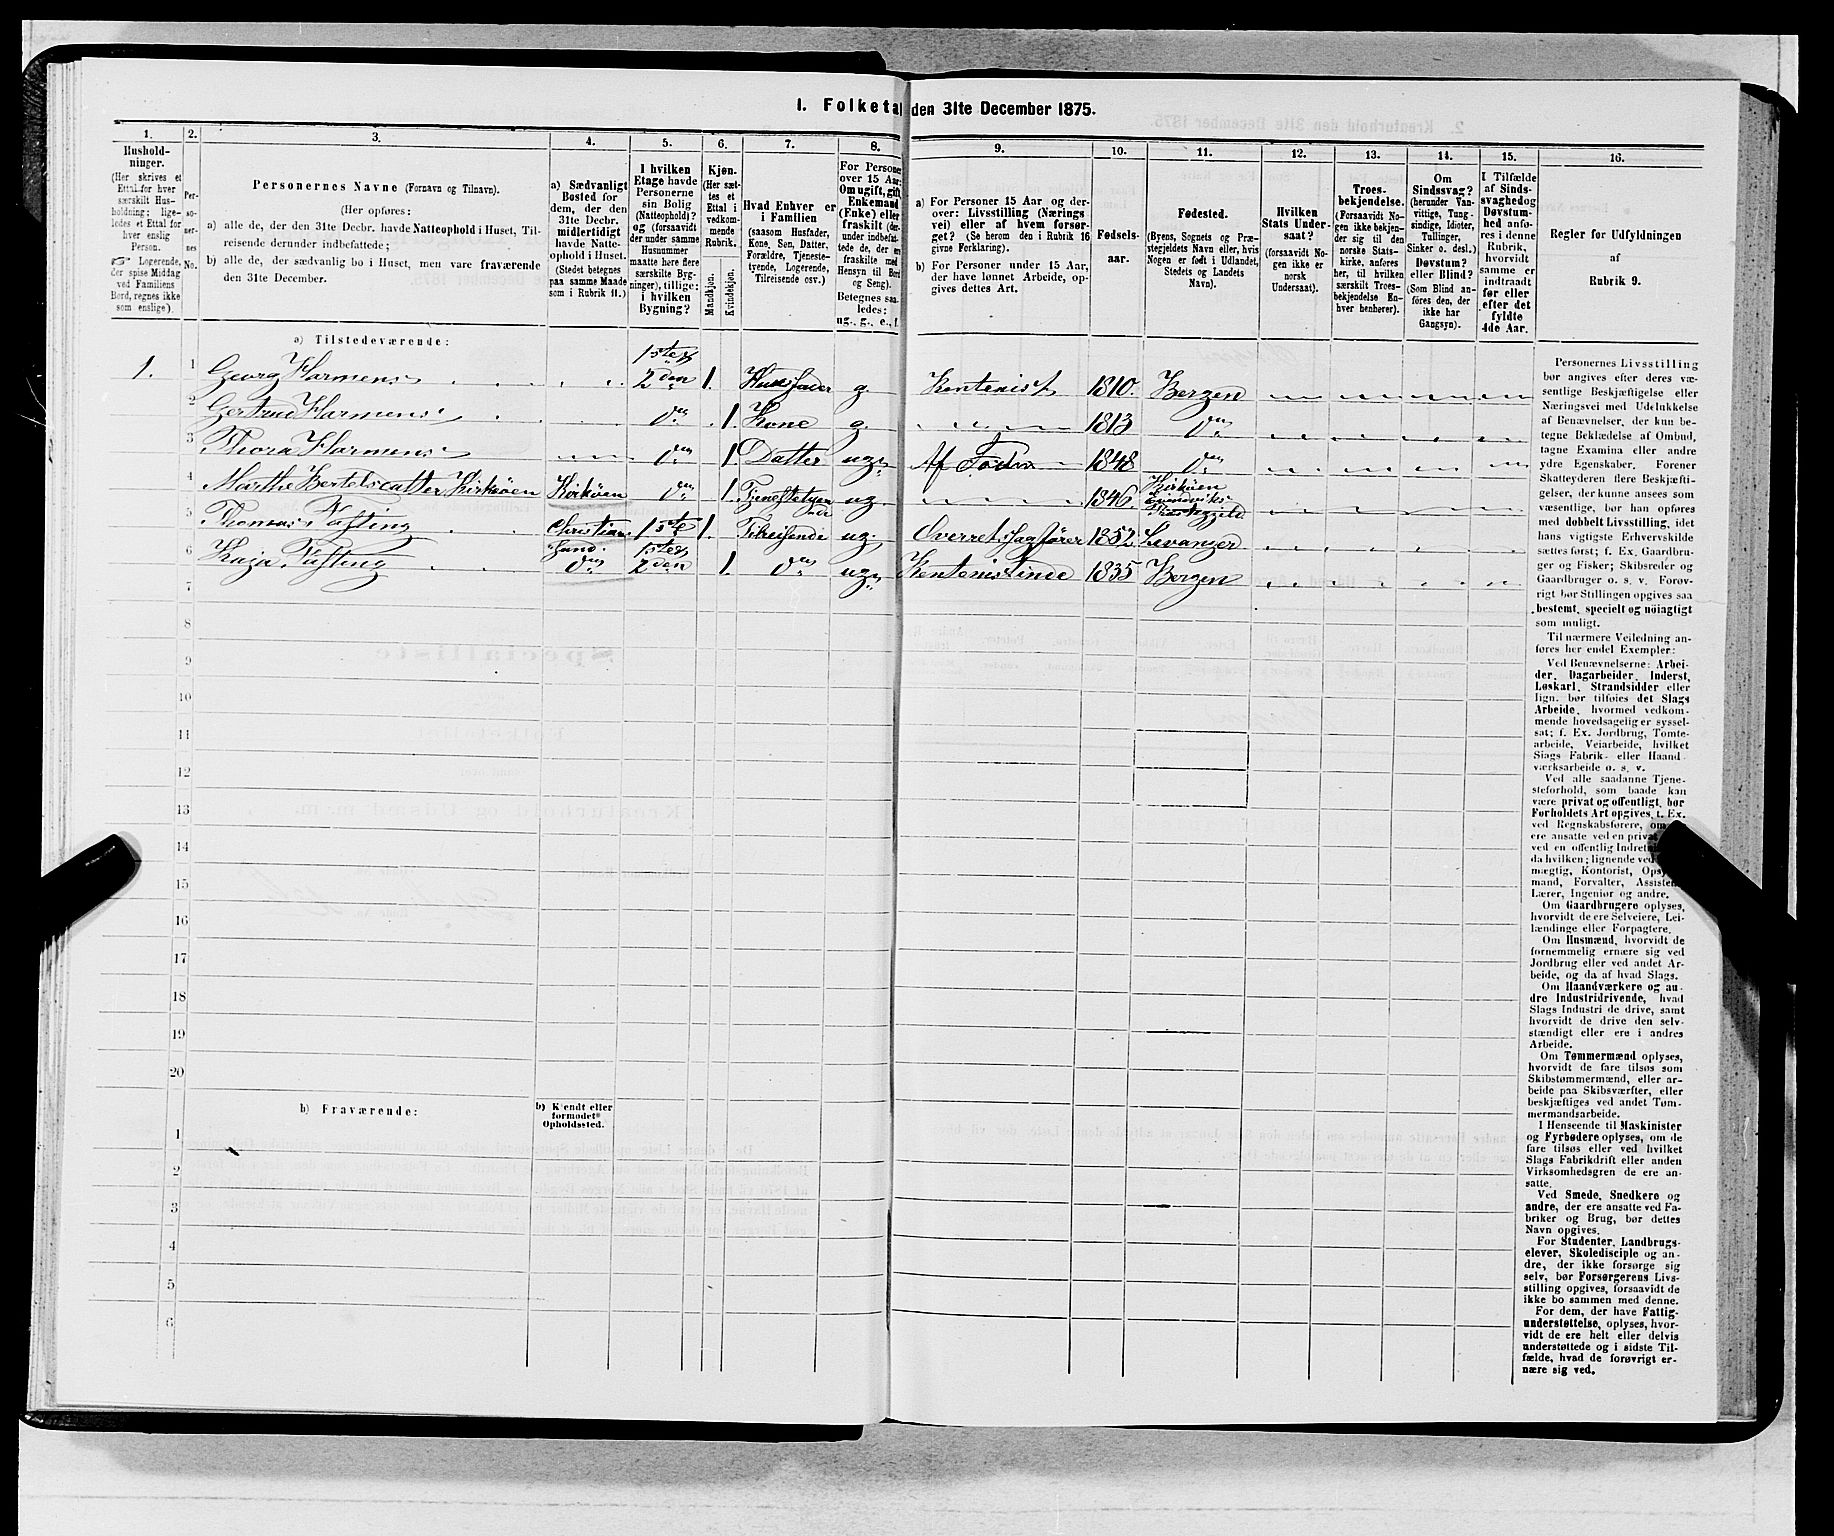 1. Folketal den 31te December 1875.
1. 2. 3. 4. 5. 6. 7. 8. 9. 10. 11. 12. 13. 14. 15. 16.
Hushold-
ninger.
(Her skrives et
Ettal for hver
særskilt Hus-
holdning; lige-
ledes et Ettal for
hver enslig
Person.
☞ Logerende,
der spise Middag
ved Familiens
Bord, regnes ikke
som enslige).
Per-
so-
ner-
nes
No.
Personernes Navne (Fornavn og Tilnavn).
(Her opføres:
a) alle de, der den 31te Decbr. havde Natteophold i Huset, Til-
reisende derunder indbefattede;
b) alle de, der sædvanlig bo i Huset, men vare fraværende
den 31te December.
a) Sædvanligt
Bosted for
dem, der den
31te Decbr.
midlertidigt
havde Natte-
ophold i Huset.
(Stedet betegnes
paa samme Maade
som i Rubrik 11.)
I hvilken
Etage havde
Personerne
sin Bolig
(Natteophold)?
og (forsaavidt
der under samme
Husnummer
maatte høre flere
særskilte Byg-
ninger), tillige:
i hvilken
Bygning?
Kjøn.
(Her sæt-
tes et
Ettal i
vedkom-
mende
Rubrik.
Mandkjøn.
Kvindekjøn.
Hvad Enhver er
i Familien
(saasom Husfader,
Kone, Søn, Datter,
Forældre, Tjeneste-
tyende, Logerende,
Tilreisende osv.)
For Personer
over 15 Aar:
Om ugift, gift,
Enkemand
(Enke) eller
fraskilt (der-
under indbefat-
tede de, der ere
fraskilte med
Hensyn til Bord
og Seng).
Betegnes saa-
ledes:
ug., g., e., f.
a) For Personer 15 Aar og der-
over: Livsstilling (Nærings-
vei) eller af hvem forsør-
get? (Se herom den i Rubrik 16
givne Forklaring).
b) For Personer under 15 Aar,
der have lønnet Arbeide, op-
gives dettes Art.
Fødsels-
aar.
Fødested.
(Byens, Sognets og Præ-
stegjeldets Navn eller, hvis
Nogen er født i Udlandet,
Stedets og Landets
Navn).
Hvilken
Stats Under-
saat?
(forsaavidt No-
gen ikke er
norsk
Undersaat).
Troes-
bekjendelse.
(Forsaavidt No-
gen ikke bekjen-
der sig til den
norske Stats-
kirke, anføres
her, til hvilken
særskilt Troes-
bekjendelse En-
hver henhører).
Om
Sindssvag?
(herunder Van-
vittige, Tung-
sindige, Idioter,
Tullinger,
Sinker o. desl.)
Døvstum?
eller Blind?
(Som Blind an-
føres den, der
ikke har
Gangsyn).
I Tilfælde
af Sinds-
svaghed og
Døvstum-
hed anfø-
res i denne
Rubrik,
hvorvidt
samme er
indtraadt
før eller
efter det
fyldte
4de Aar.
Regler for Udfyldningen
af
Rubrik 9.
a) Tilstedeværende:
1. 1 Georg Harmens 1ste & 2den 1. Husfader g. Rentenist 1810. Bergen
2 Gertrud Harmens do 1. Kone g. 1813 do
3 Thora Harmens do 1. Datter ug. Af Faderen 1848 do
4 Marthe Bertelsdatter Kirkøen Kirkøen do 1. Tjenestetyende ug. 1846. Kirkøen Eivindviks Præstegjeld
5 Thomas Fasting Christiansund. 1ste 1. Tilreisende ug. Overrets Sagfører 1852 Levanger
6 Kaja Fasting do 1ste & 2den 1. do ug. Rentenistinde 1835 Bergen
7
8
9
10
11
12
13
14
15
16
17
18
19
20
b) Fraværende:
b) Kjendt eller
formodet
Opholdssted.
1
2
3
4
5
6
Personernes Livsstilling
bør angives efter deres væ-
sentlige Beskjæftigelse eller
Næringsvei med Udelukkelse
af Benævnelser, der kun be-
tegne Beklædelse af Ombud,
tagne Examina eller andre
ydre Egenskaber. Forener
Skatteyderen flere Beskjæfti-
gelser, der kunne ansees som
væsentlige, bør han opføres
med dobbelt Livsstilling, idet
hans vigtigste Erhvervskilde
sættes først; f. Ex. Gaardbru-
ger og Fisker; Skibsreder og
Gaardbruger o. s. v. Forøv-
rigt bør Stillingen opgives saa
bestemt, specielt og nöiagtigt
som muligt.
Til nærmere Veiledning an-
føres her endel Exempler:
Ved Benævnelserne: Arbei-
der, Dagarbeider, Inderst,
Løskarl, Strandsidder eller
lign. bør tilføies det Slags
Arbeide, hvormed vedkom-
mende hovedsagelig er syssel-
sat; f. Ex. Jordbrug, Tømte-
arbeide, Veiarbeide, hvilket
Slags Fabrik- eller Haand-
værksarbeide o. s. v.
Ved alle saadanne Tjene-
steforhold, som baade kan
være privat og offentligt, bør
Forholdets Art opgives, t. Ex.
ved Regnskabsførere, om
ere ansatte ved en privat
ved en offentlig Indretning
da hvilken; lignende ved
mægtig, Kontorist, Opsyns-
mand, Forvalter, Assistent,
Lærer, Ingeniør og andre.
Om Gaardbrugere oplyses,
hvorvidt de ere Selveiere, Lei-
lændinge eller Forpagtere.
Om Husmænd, hvorvidt de
fornemmelig ernære sig ved
Jordbrug eller ved andet Ar-
beide, og da af hvad Slags.
Om Haandværkere og an-
dre Industridrivende, hvad
Slags Industri de drive, samt
hvorvidt de drive den selv-
stændigt eller ere i andres
Arbeide.
Om Tømmermænd oplyses,
hvorvidt de fare tilsøs som
Skibstømmermænd, eller ar-
beide paa Skibsværfter, eller
beskjæftiges ved andet Tøm-
mermandsarbeide.
I Henseende til Maskinister
og Fyrbødere oplyses, om de
fare tilsøs eller ved hvilket
Slags Fabrikdrift eller anden
Virksomhedsgren de ere an-
satte.
Ved Smede, Snedkere og
andre, der ere ansatte ved Fa-
briker og Brug, bør dettes
Navn opgives.
For Studenter, Landbrugs-
elever, Skoledisciple og an-
dre, der ikke forsørge sig
selv, bør Forsørgerens Livs-
stilling opgives, forsaavidt de
ikke bo sammen med denne.
For dem, der have Fattig-
understøttelse, oplyses, hvor-
vidt de ere helt eller delvis
understøttede og i sidste Til-
fælde, hvad de forøvrigt er-
nære sig ved.